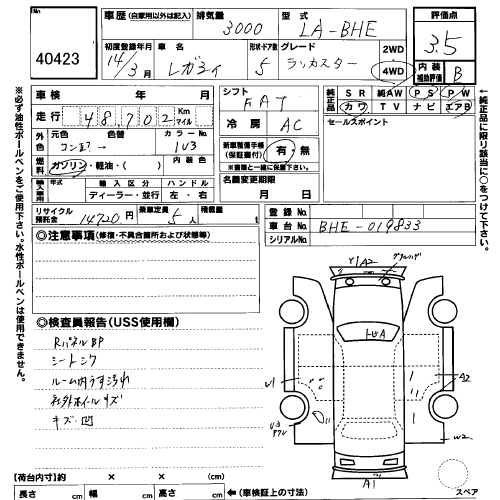 No.
40423
車歴 (自家用以外は記入)
排気量 3000
型式 LA-BHE
評価点 3.5
初度登録年月 14/3月
車名 レガシィ
形状・ドア数 5
グレード ランカスター
2WD
4WD
内装補助評価 B
車検 年 月
シフト FAT
純正品 SR 純AW PS PW
カワ TV ナビ エアB
走行 48702 Km マイル
冷房 AC
セールスポイント
外色 元色 色替 カラーNo. 1V3
燃料 ガソリン・軽油・( ) 内装色
新車整備手帳(保証書付) 有・無
※書類と一緒に保管
輸入車用 年式 輸入区分 ハンドル
ディーラー・並行 左・右
名義変更期限 月 日
リサイクル預託金 14720円
乗車定員 5人
積載量 t
登録No.
車台No. BHE-019833
シリアルNo.
◎注意事項(修復・不具合箇所および状態等)
◎検査員報告(USS使用欄)
RパネルBP
シートシワ
ルーム内うす汚れ
社外ホイールキズ
キズ凹
Y1 A2
トビA
A2
W2
A1
スペア
【荷台内寸】約 × × (cm)
長さ cm 幅 cm 高さ cm ←(車検証上の寸法)
※必ず油性ボールペンをご使用下さい。水性ボールペンは使用できません。
←純正品に限り該当に○をつけて下さい。